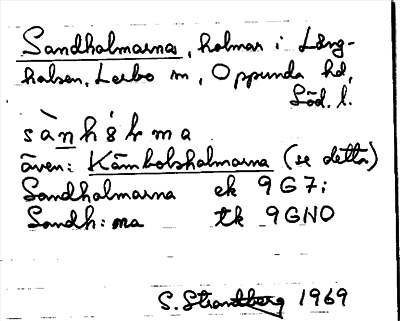 Sandholmarna, holmar i Lång-
halsen, Lerbo sn, Oppunda hd,
Söd. l.
sànhólma
även: Kambolsholmarna (se detta)
Sandholmarna ek 9G7i
Sandh:ma tk 9GNO
S. Strandberg 1969